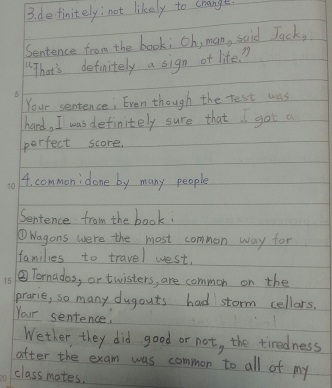 3. definitely: not likely to change.
Sentence from the book: Oh, man, said Jack,
"That's definitely a sign of life."
5
Your sentence: Even though the test was
hard, I was definitely sure that I got a
perfect score.
10 4. common: done by many people
Sentence from the book:
① Wagons were the most common way for
families to travel west.
15 ② Tornados, or twisters, are common on the
prarie, so many dugouts had storm cellars.
Your sentence:
Wether, they did good or not, the tiredness
after the exam was common to all of my
20 class mates.